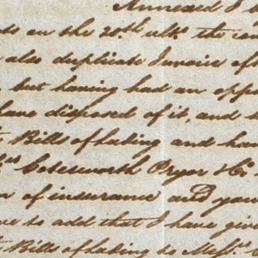 Annexed I
on the 20th ulto the
also duplicate Invoice of
but having had an opp
have disposed of it, and
Bills of lading and ha
Cotesworth Pryor & Co
of insurance and you
to add that I have giv
Bills of lading to Messrs